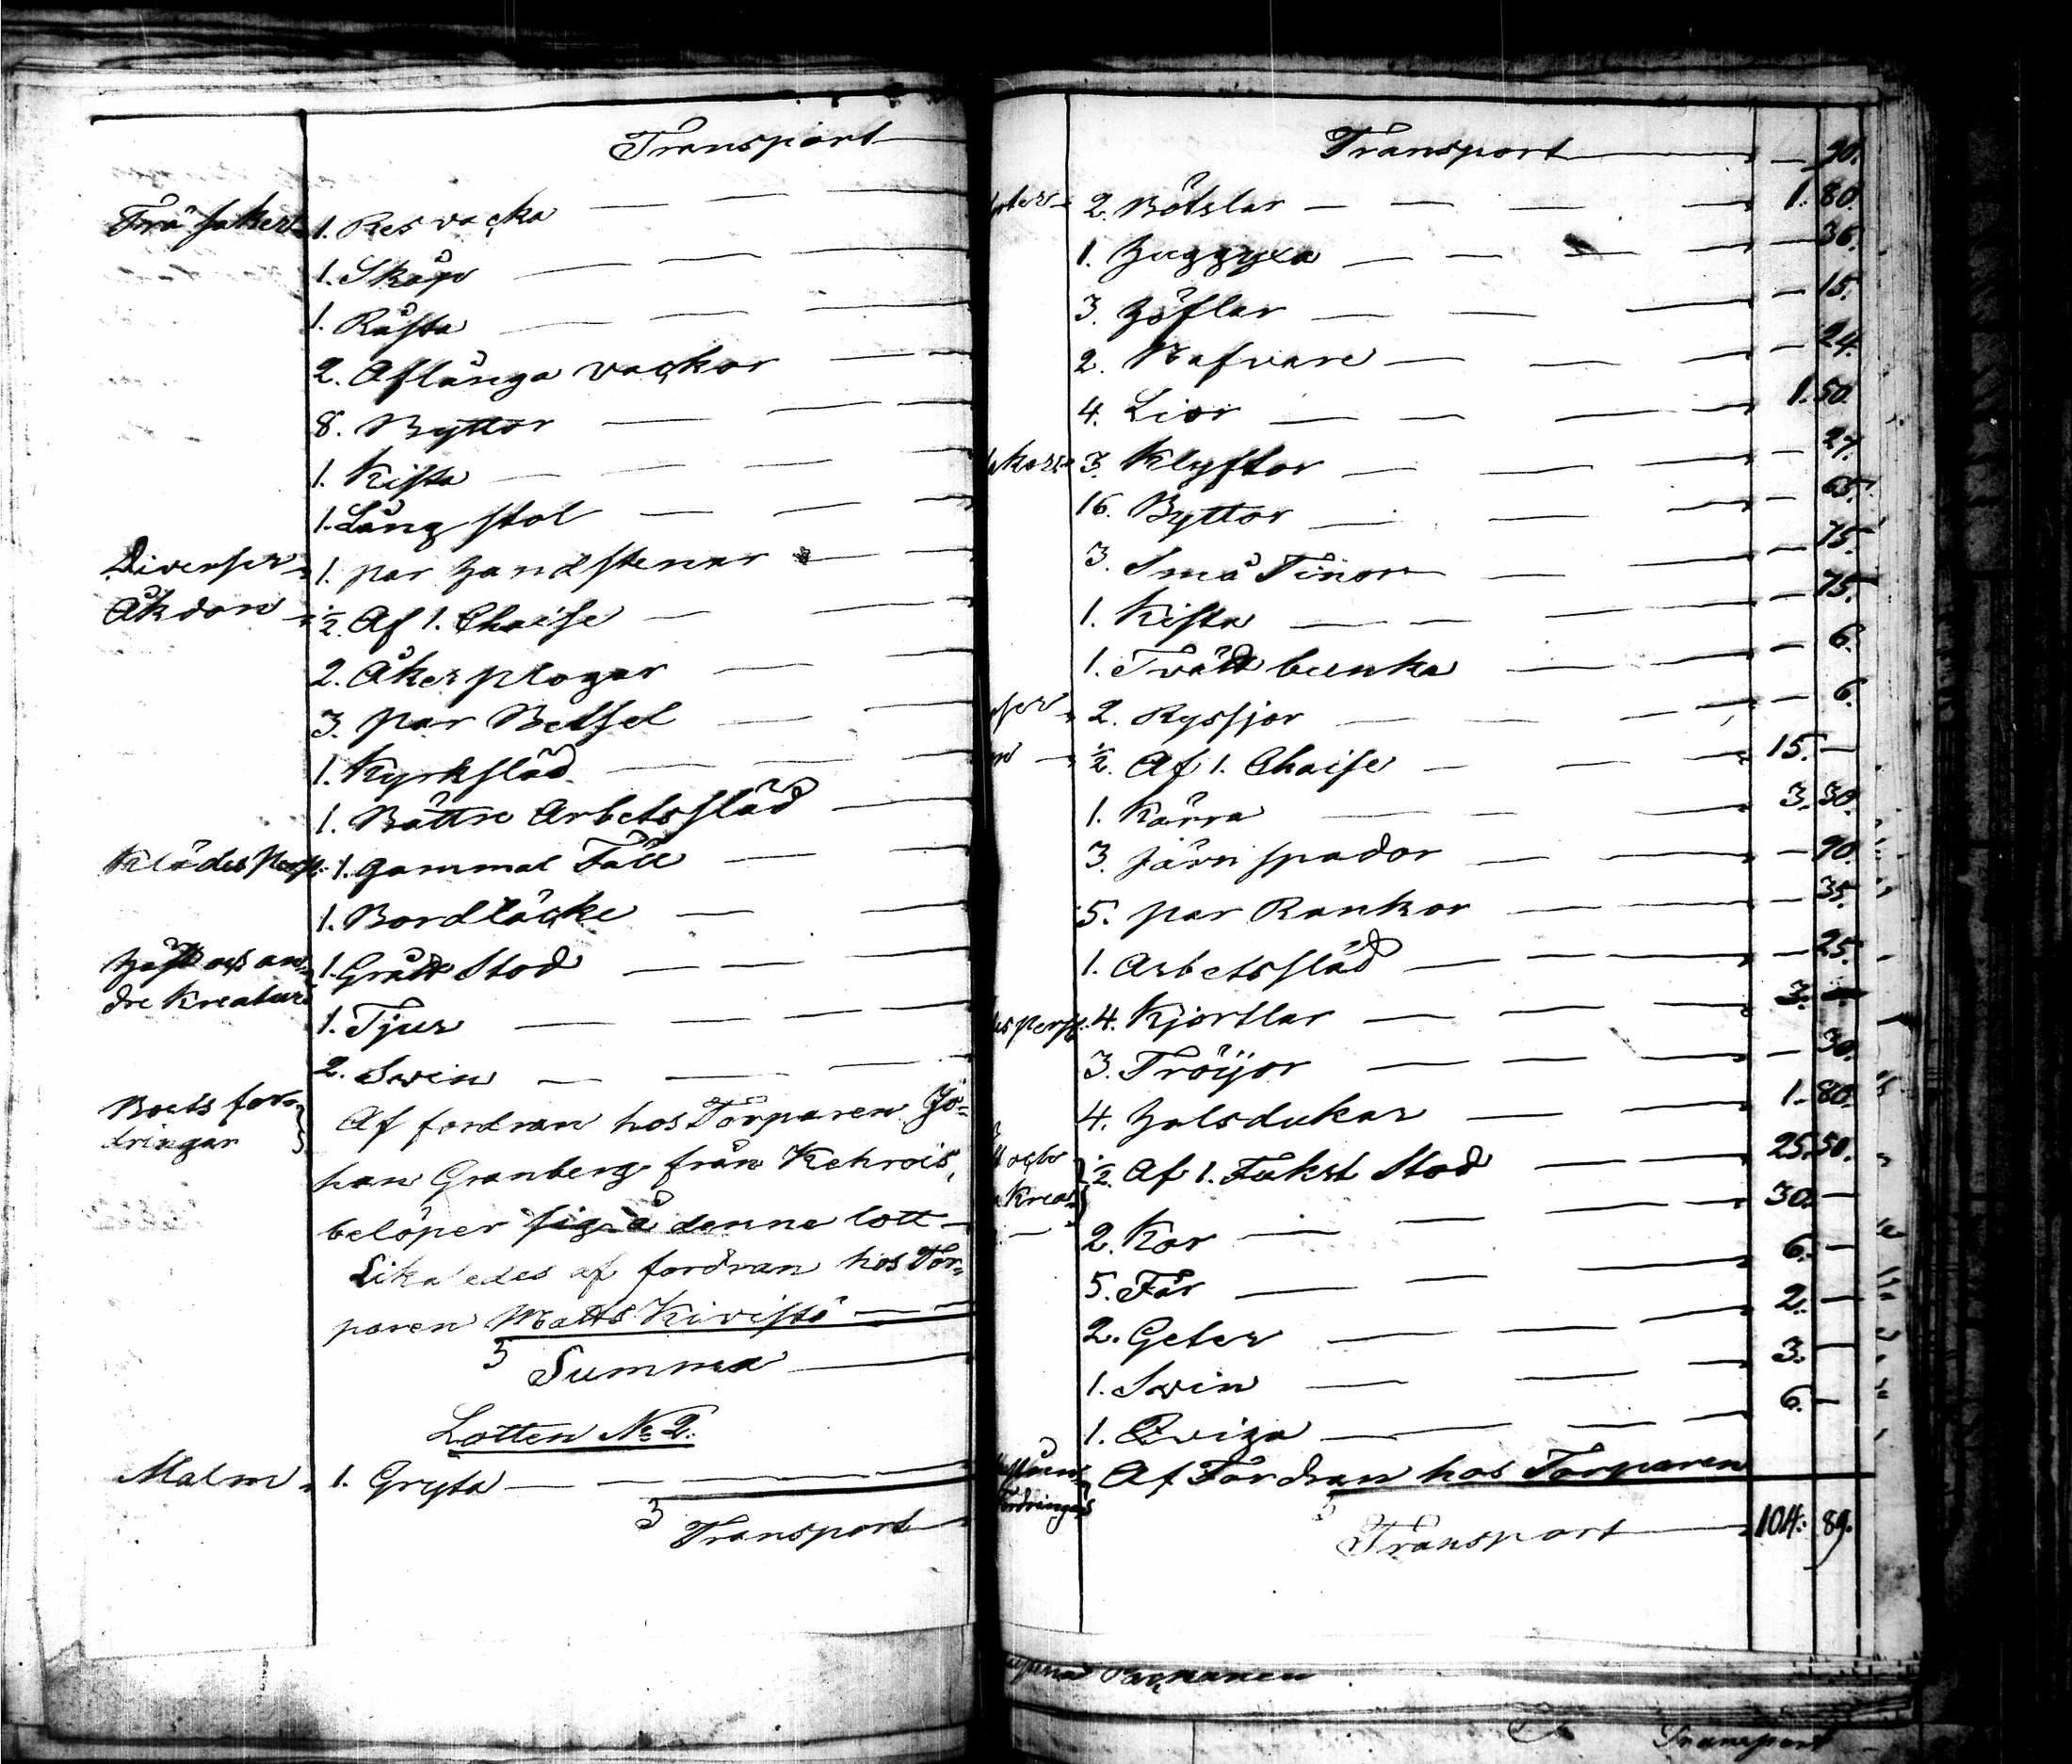 Transport
Trä saker 1. Res vacka
1. Skåp
1. Råsta
2. Aflånga vackor
8. Byttor
1. Kista
1. Lång stol
Diverser 1. par Handstenar
Åkdon ½ Af 1. Chaise
2. Åker plogar
3. par Betsel
1. Kyrksläd
1. Bättre Arbetssläd
Klädes Pers: 1. gammal Fäll
1. Bordtäcke
Häst och an- 1. Grått Stod
dre Kreatur
1. Tjur
2. Swin
Boets for- Af fordran hos Torparen Jo-
dringar
han Granberg från Kehrois,
belöper sig å denne lott
Likaledes af fordran hos Tor-
paren Matts Kivistö
Summa
Lotten No 2.
Malm 1. Gryta
Transport
Transport — 90.
2. Bötslar 1. 80.
1. Huggyxa — 36.
3. Höflar — 15.
2. Nafvare — 24.
4. Liar 1. 50.
3. Klyftor — 27.
16. Byttor — 65.
3. Små Tinor — 75.
1. Kista — 75.
1. Tvätt bunka — 6.
2. Ryssjor — 6.
½ Af 1. Chaise 15. —
1. Kärra 3. 30.
3. Järn spador — 90.
5. par Rankor — 35.
1. Arbetssläd — 25.
des pers: 4. Kjortlar 3. —
3. Tröijor — 30.
4. Halsdukar 1. 80.
och ½ Af 1. Fukst Stod 25. 50.
Krea-
2. Kor 30. —
5. Får 6. —
2. Geter 2. —
1. Swin 3. —
1. Qviga 6. —
Af Fordran hos Torparen
fordringar
Transport 104. 89.
Transport